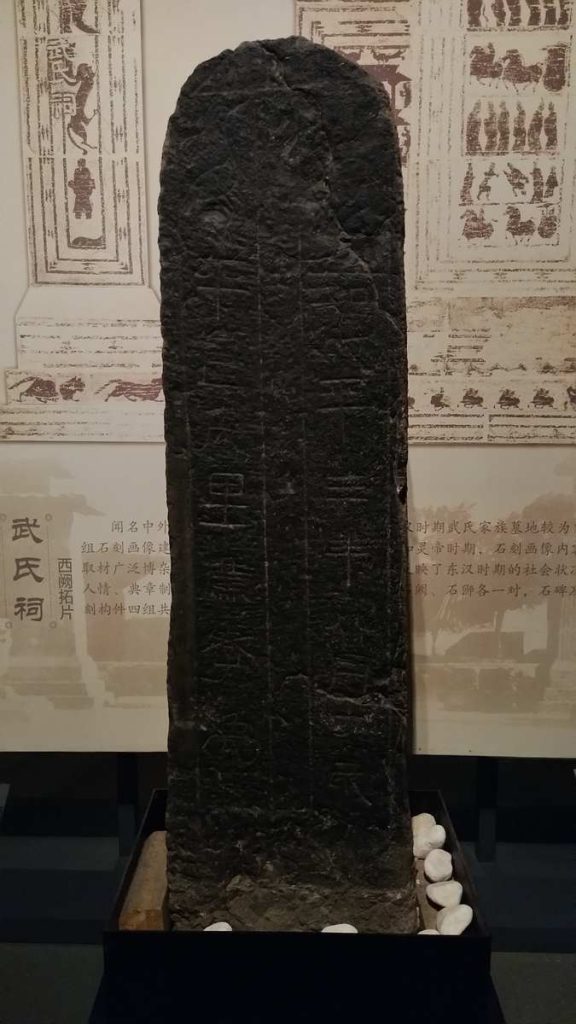 武氏祠
河平三年八月丁亥
平邑成里麃孝禹
武氏祠
西阙拓片
闻名中外 时期武氏家族墓地较为
组石刻画像建 灵帝时期，石刻画像内
取材广泛博杂 映了东汉时期的社会状
人情、典章制 阙、石狮各一对，石碑
刻构件四组共